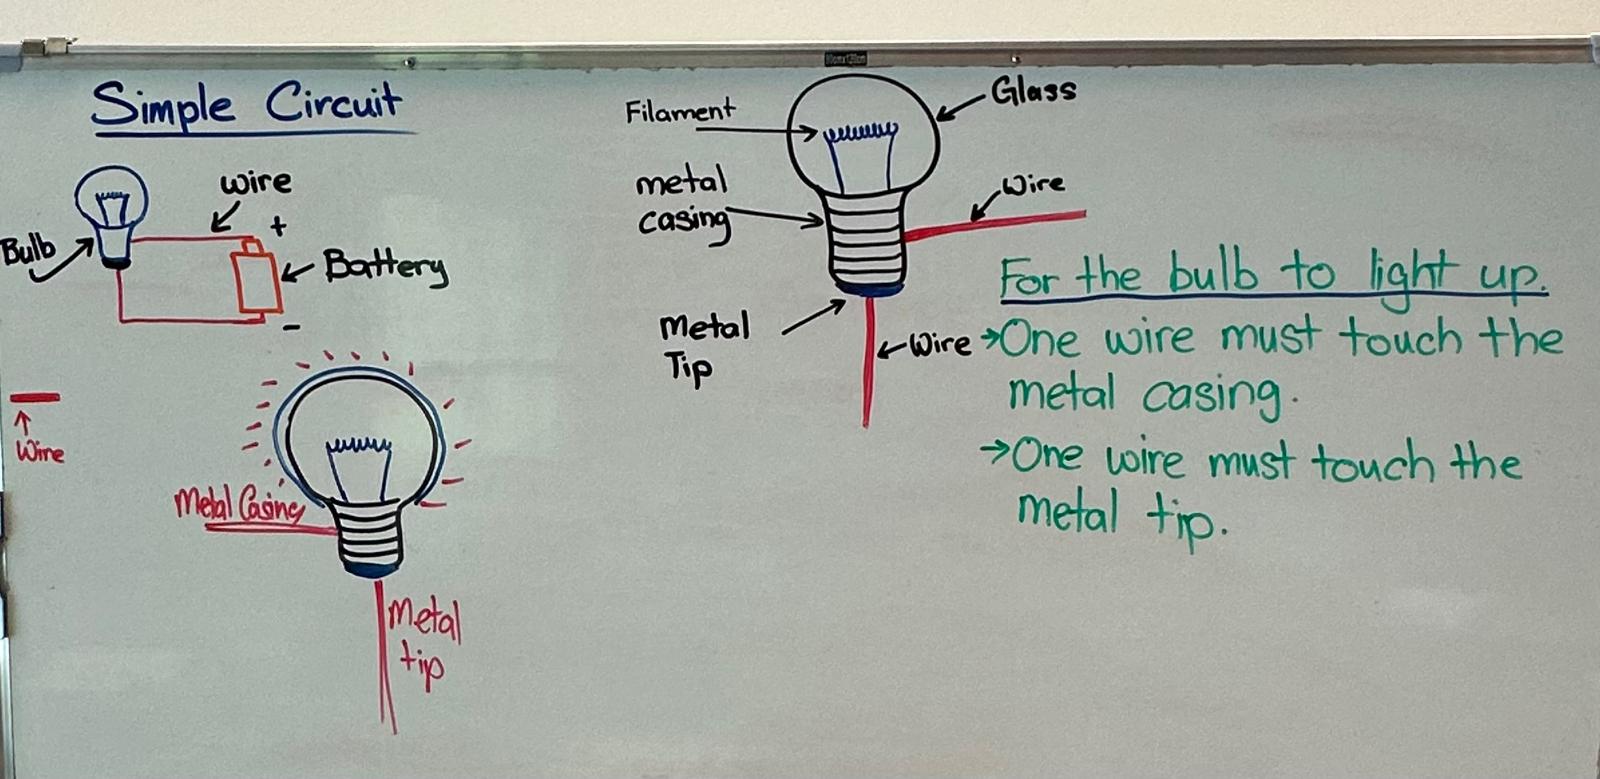 Simple Circuit
wire
+
Bulb
Battery
-
Wire
Metal Casing
Metal
tip
Filament
Glass
metal
casing
Wire
Metal
Tip
Wire
For the bulb to light up.
→One wire must touch the
metal casing.
→One wire must touch the
metal tip.